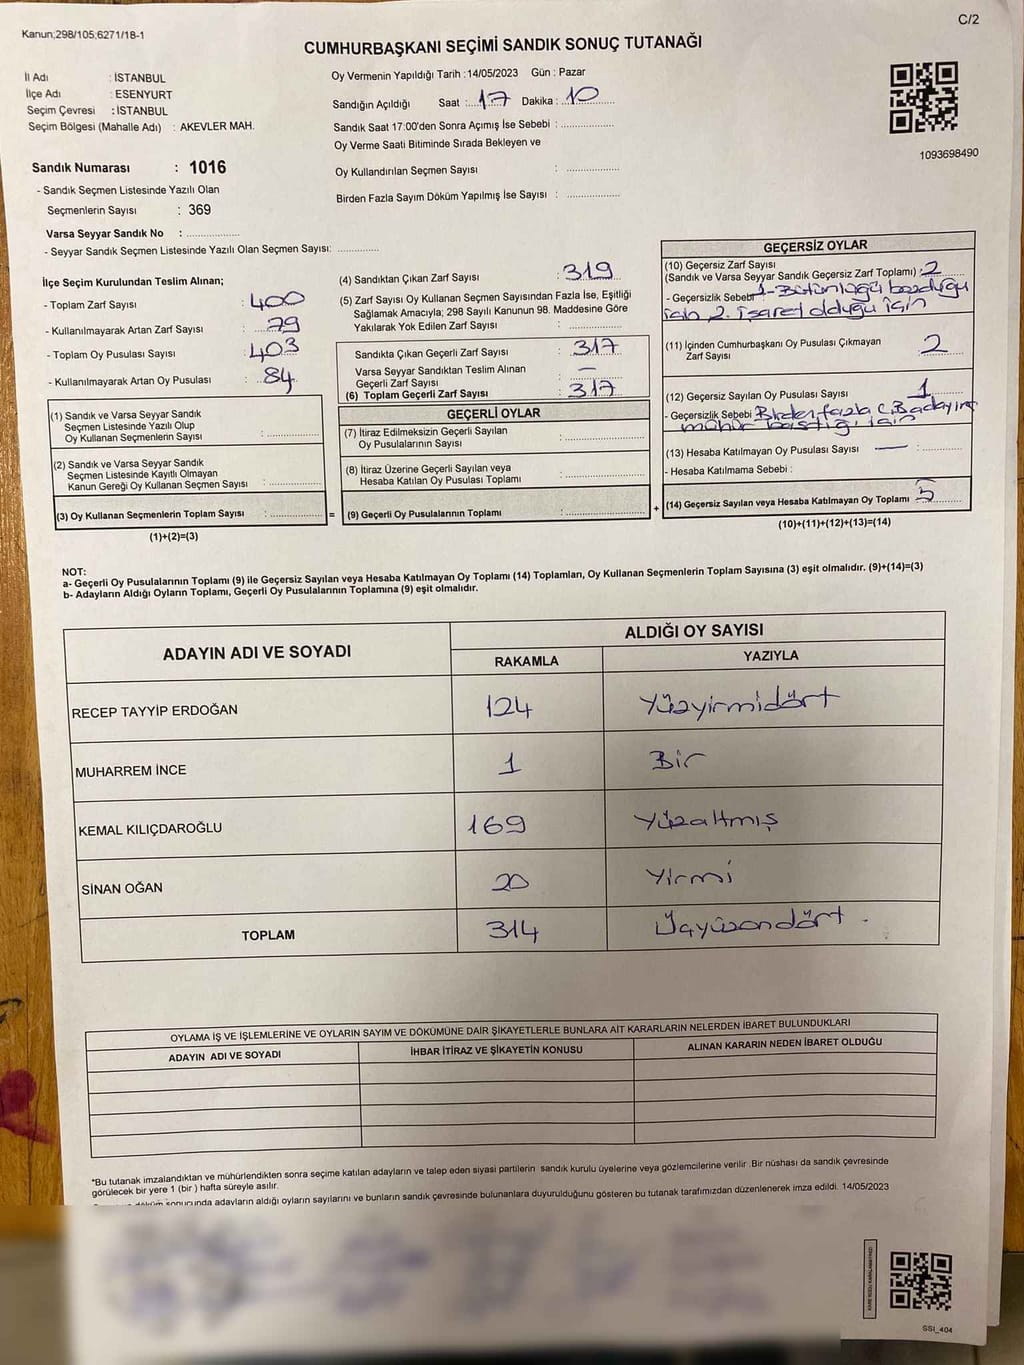 C/2
Kanun;298/105;6271/18-1
CUMHURBAŞKANI SEÇİMİ SANDIK SONUÇ TUTANAĞI
İl Adı : İSTANBUL
İlçe Adı : ESENYURT
Seçim Çevresi : İSTANBUL
Seçim Bölgesi (Mahalle Adı) : AKEVLER MAH.
Oy Vermenin Yapıldığı Tarih : 14/05/2023 Gün : Pazar
Sandığın Açıldığı Saat : 17 Dakika : 10
Sandık Saat 17:00'den Sonra Açımış İse Sebebi :
Oy Verme Saati Bitiminde Sırada Bekleyen ve
Oy Kullandırılan Seçmen Sayısı :
Birden Fazla Sayım Döküm Yapılmış İse Sayısı :
1093698490
Sandık Numarası : 1016
- Sandık Seçmen Listesinde Yazılı Olan
Seçmenlerin Sayısı : 369
Varsa Seyyar Sandık No :
- Seyyar Sandık Seçmen Listesinde Yazılı Olan Seçmen Sayısı:
İlçe Seçim Kurulundan Teslim Alınan;
- Toplam Zarf Sayısı : 400
- Kullanılmayarak Artan Zarf Sayısı : 79
- Toplam Oy Pusulası Sayısı : 403
- Kullanılmayarak Artan Oy Pusulası : 84
(1) Sandık ve Varsa Seyyar Sandık
Seçmen Listesinde Yazılı Olup
Oy Kullanan Seçmenlerin Sayısı :
(2) Sandık ve Varsa Seyyar Sandık
Seçmen Listesinde Kayıtlı Olmayan
Kanun Gereği Oy Kullanan Seçmen Sayısı :
(3) Oy Kullanan Seçmenlerin Toplam Sayısı : =
(1)+(2)=(3)
(4) Sandıktan Çıkan Zarf Sayısı : 319
(5) Zarf Sayısı Oy Kullanan Seçmen Sayısından Fazla İse, Eşitliği
Sağlamak Amacıyla; 298 Sayılı Kanunun 98. Maddesine Göre
Yakılarak Yok Edilen Zarf Sayısı :
Sandıkta Çıkan Geçerli Zarf Sayısı : 317
Varsa Seyyar Sandıktan Teslim Alınan
Geçerli Zarf Sayısı : —
(6) Toplam Geçerli Zarf Sayısı : 317
GEÇERLİ OYLAR
(7) İtiraz Edilmeksizin Geçerli Sayılan
Oy Pusulalarının Sayısı :
(8) İtiraz Üzerine Geçerli Sayılan veya
Hesaba Katılan Oy Pusulası Toplamı :
(9) Geçerli Oy Pusulalarının Toplamı : +
GEÇERSİZ OYLAR
(10) Geçersiz Zarf Sayısı
(Sandık ve Varsa Seyyar Sandık Geçersiz Zarf Toplamı) : 2
- Geçersizlik Sebebi 1-Bütünlüğü bozduğu
için 2. işaret olduğu için
(11) İçinden Cumhurbaşkanı Oy Pusulası Çıkmayan
Zarf Sayısı 2
(12) Geçersiz Sayılan Oy Pusulası Sayısı : 1
- Geçersizlik Sebebi Birden fazla C.B adayına
mühür bastığı için
(13) Hesaba Katılmayan Oy Pusulası Sayısı — :
- Hesaba Katılmama Sebebi :
(14) Geçersiz Sayılan veya Hesaba Katılmayan Oy Toplamı 5
(10)+(11)+(12)+(13)=(14)
NOT:
a- Geçerli Oy Pusulalarının Toplamı (9) ile Geçersiz Sayılan veya Hesaba Katılmayan Oy Toplamı (14) Toplamları, Oy Kullanan Seçmenlerin Toplam Sayısına (3) eşit olmalıdır. (9)+(14)=(3)
b- Adayların Aldığı Oyların Toplamı, Geçerli Oy Pusulalarının Toplamına (9) eşit olmalıdır.
ADAYIN ADI VE SOYADI
ALDIĞI OY SAYISI
RAKAMLA YAZIYLA
RECEP TAYYİP ERDOĞAN 124 Yüzyirmidört
MUHARREM İNCE 1 Bir
KEMAL KILIÇDAROĞLU 169 Yüzaltmış
SİNAN OĞAN 20 Yirmi
TOPLAM 314 Üçyüzondört
OYLAMA İŞ VE İŞLEMLERİNE VE OYLARIN SAYIM VE DÖKÜMÜNE DAİR ŞİKAYETLERLE BUNLARA AİT KARARLARIN NELERDEN İBARET BULUNDUKLARI
ADAYIN ADI VE SOYADI İHBAR İTİRAZ VE ŞİKAYETİN KONUSU ALINAN KARARIN NEDEN İBARET OLDUĞU
*Bu tutanak imzalandıktan ve mühürlendikten sonra seçime katılan adayların ve talep eden siyasi partilerin sandık kurulu üyelerine veya gözlemcilerine verilir .Bir nüshası da sandık çevresinde
görülecek bir yere 1 (bir ) hafta süreyle asılır.
sonucunda adayların aldığı oyların sayılarını ve bunların sandık çevresinde bulunanlara duyurulduğunu gösteren bu tutanak tarafımızdan düzenlenerek imza edildi. 14/05/2023
SSI_404